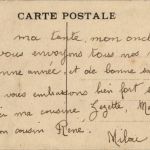 CARTE POSTALE
ma tante, mon oncl
vous envoyons tous nos
onne année et de bonne san
vous embrassons bien fort
ma cousine, Gezette, M
on cousin René.